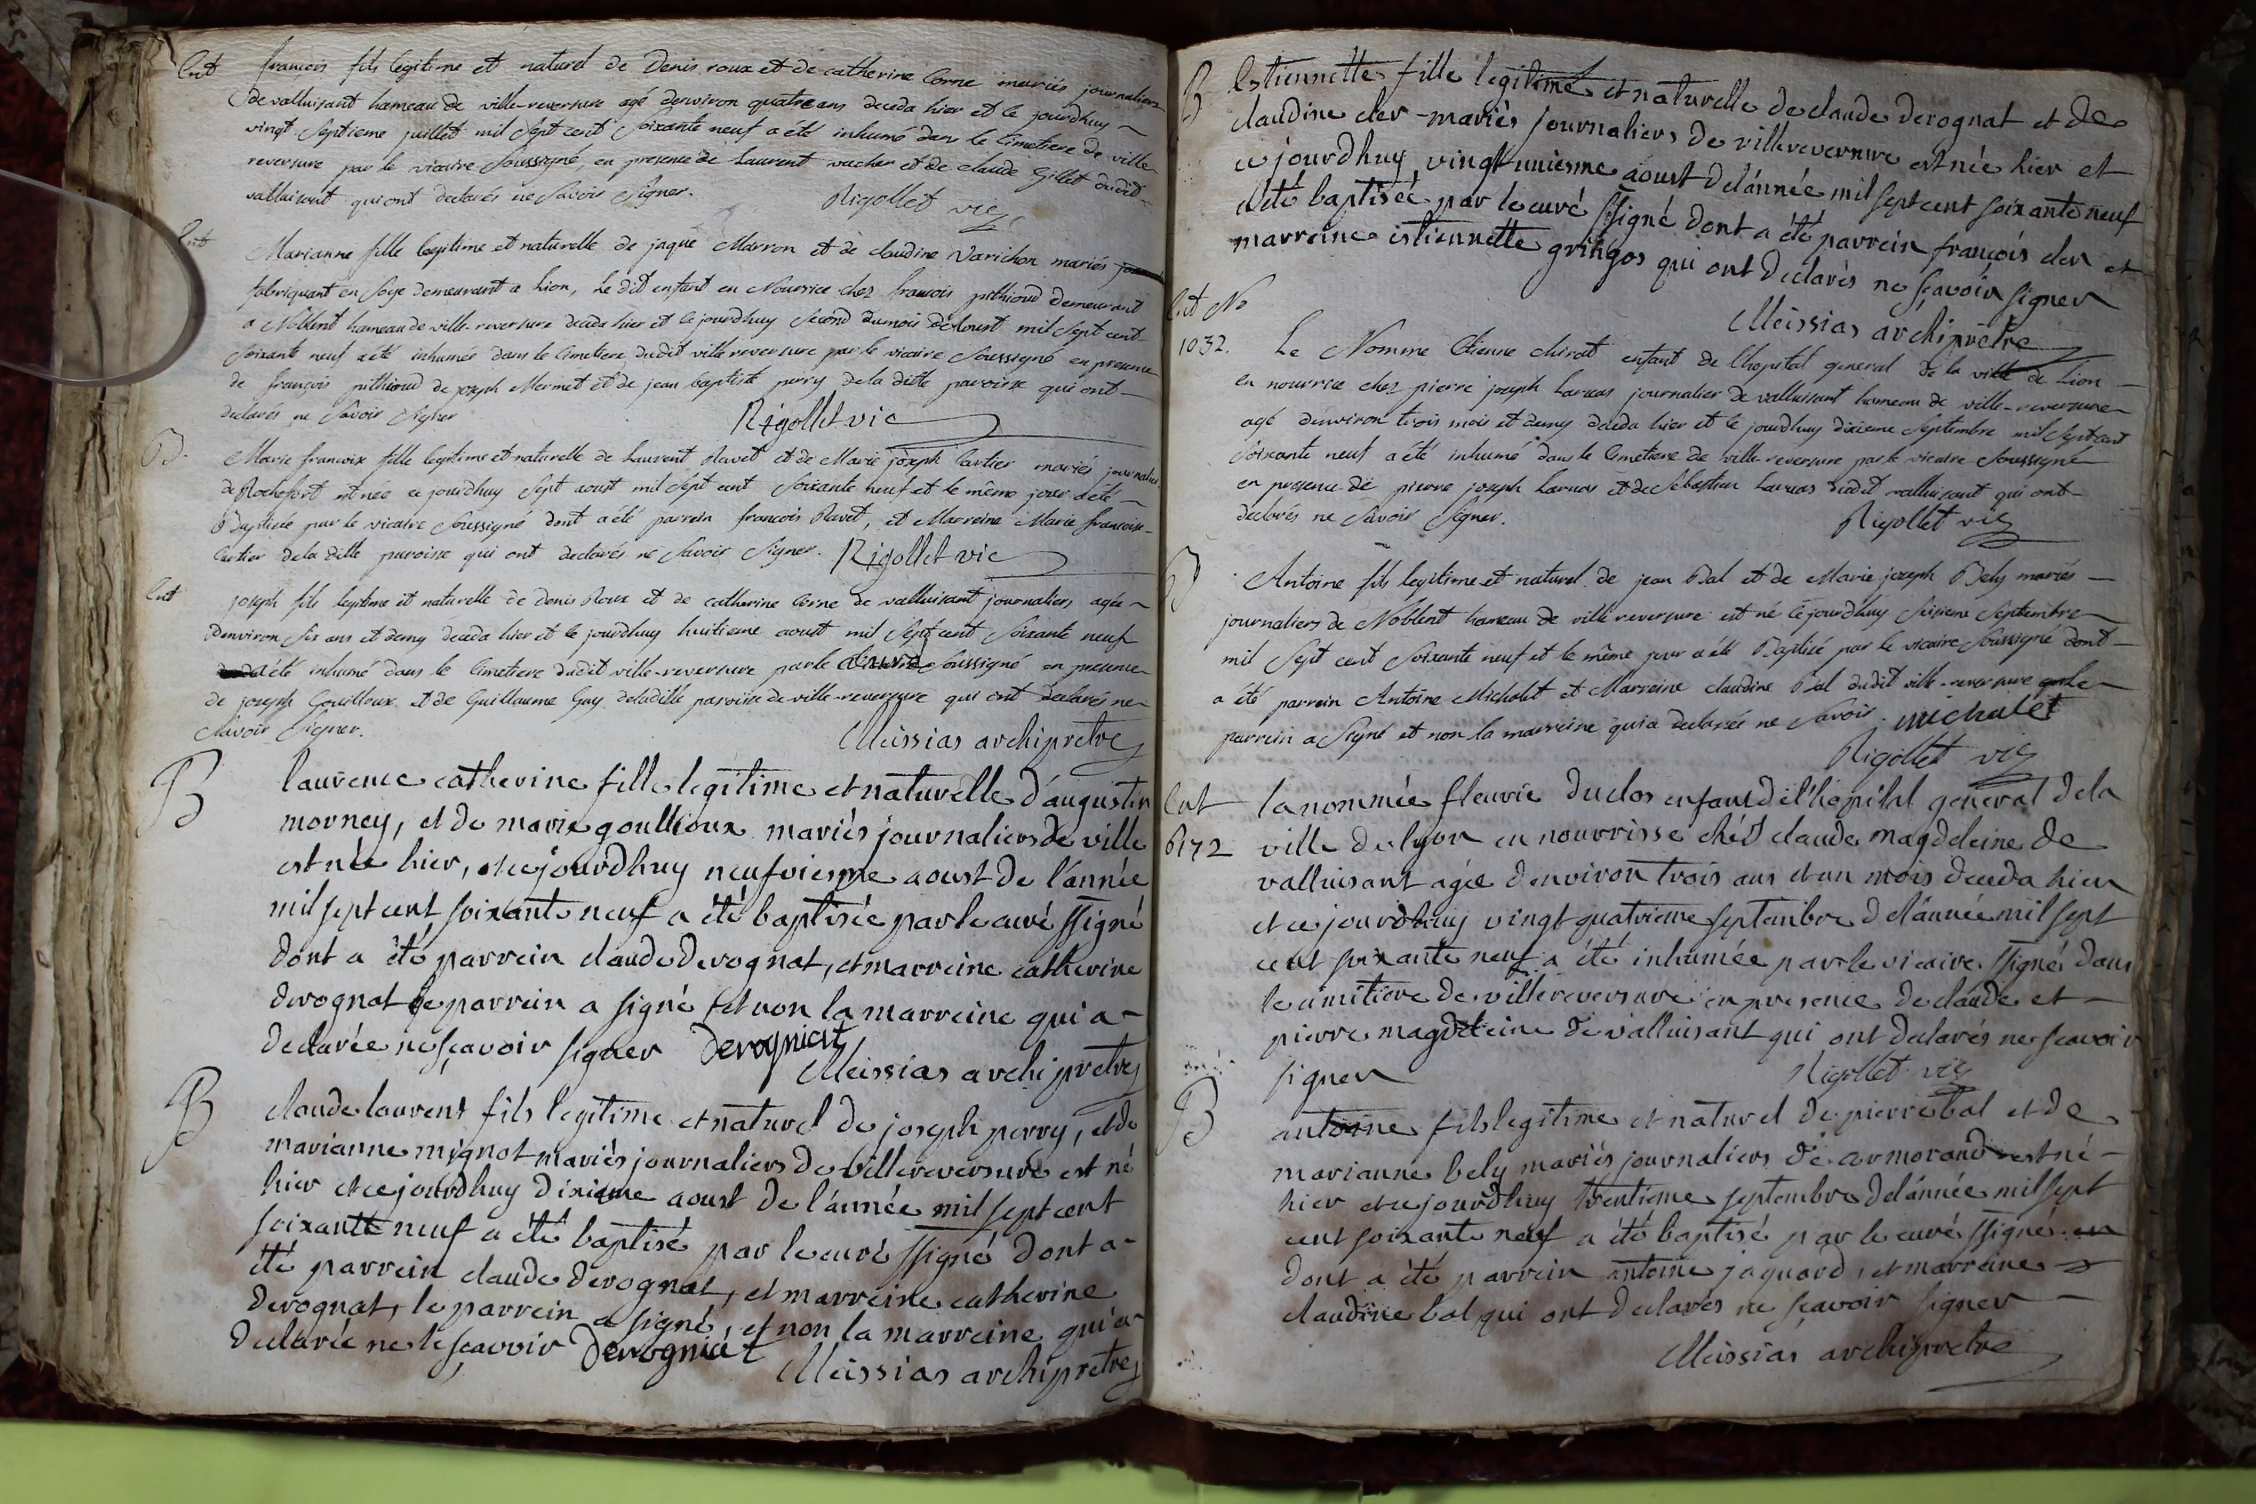 Ent françois fils légitime et naturel de Denis roux et de catherine Corne mariés journaliers
de valluisant hameau de ville-reversure agé denviron quatre ans deceda hier et le jourdhuy
vingt-Septieme juillet mil Sept cent Soixante neuf a été inhumé dans le Cimetiere de ville
reversure par le vicaire Soussigné en presence de Laurent vacher et de claude Gillet dudit
valluisant qui ont declarés ne Savoir Signer. Rigollet vic
Ent Marianne fille legitime et naturelle de jaque Marron et de claudine Varichon mariés
fabriquant en Soye demeurant a Lion, Le dit enfant en Nourrice chez francois pithioud demeurant
a Noblent hameau de ville-reversure deceda hier et le jourdhuy Second du mois d'Aoust mil Sept cent
Soixante neuf a été inhumée dans le Cimetiere dudit ville reversure par le vicaire Soussigné en presence
de françois pithioud de joseph Mermet et de jean baptiste perry de la ditte paroisse qui ont
declarés ne Savoir Signer Rigollet vic
B. Marie francoise fille legitime et naturelle de Laurent Ravet et de Marie joseph Cartier mariés journaliers
de Rochefort est née ce jourdhuy Sept aoust mil Sept cent Soixante neuf et le même jour a été
Baptisée par le vicaire Soussigné dont a été parrein francois Ravet, et Marreine Marie francoise
Cartier de la ditte paroisse qui ont declarés ne Savoir Signer. Rigollet vic
Ent joseph fils legitime et naturelle de denis Roux et de catherine Corne de valluisant journaliers agée
denviron Six ans et demy deceda hier et le jourdhuy huitieme aoust mil Sept cent Soixante neuf
a été inhumé dans le Cimetiere dudit ville-reversure par le Curé Soussigné en presence
de joseph Gouilloux et de Guillaume Guy de la ditte paroisse de ville-reversure qui ont declarés ne
Savoir Signer. Meissias archiprêtre
B laurence catherine fille legitime et naturelle d'augustin
morney, et de marie goullioux mariés journaliers de ville
est née hier, et ce jourd'huy neufviesme aoust de l'année
mil sept cent soixante neuf a été baptisée par le curé ssigné
dont a été parrein claude derognat, et marreine catherine
derognat le parrein a signé et non la marreine qui a
declarée ne sçavoir signer Derogniat
Meissias archiprêtre
B claude laurent fils legitime et naturel de joseph perry, et de
marianne mignot mariés journaliers de villereversure est né
hier et ce jourdhuy dixieme aoust de l'année mil sept cent
soixante neuf a été baptisé par le curé ssigné dont a
été parrein claude derognat, et marreine catherine
derognat, le parrein a signé, et non la marreine qui a
declarée ne le sçavoir Derogniat
Meissias archiprêtre
B Estiennette fille legitime et naturelle de claude derognat et de
claudine cler mariés journaliers de villereversure est née hier et
ce jourdhuy vingt unieme aoust de l'année mil sept cent soixante neuf
a été baptisée par le curé ssigné dont a été parrein françois cler et
marreine estiennette gringos qui ont declarés ne sçavoir signer
Meissias archiprêtre
Ent No
1032. Le Nommé Etienne chirat enfant de l'hopital general de la ville de Lion
en nourrice chez pierre joseph Larvas journalier de valluisant hameau de ville-reversure
agé denviron trois mois et demy deceda hier et le jourdhuy dixieme Septembre mil Sept cent
Soixante neuf a été inhumé dans le Cimetiere de ville-reversure par le vicaire Soussigné
en presence de pierre joseph Larvas et de Sebastien Larvas dudit valluisant qui ont
declarés ne Savoir Signer. Rigollet vic
B Antoine fils legitime et naturel de jean Bal et de Marie joseph Bely mariés
journaliers de Noblent hameau de ville reversure est né ce jourdhuy Sixieme Septembre
mil Sept cent Soixante neuf et le même jour a été Baptisé par le vicaire Soussigné dont
a été parrein Antoine Michalet et Marreine claudine Bal dudit ville-reversure le
parrein a Signé et non la marreine qui a declarée ne Savoir. michalet
Rigollet vic
Ent la nommée fleurie duclos enfant de l'hopital general de la
6172 ville de lyon en nourrisse chés claude magdeleine de
valluisant agée d'environ trois ans et un mois deceda hier
et ce jourdhuy vingt quatrieme septembre de l'année mil sept
cent soixante neuf a été inhumée par le vicaire ssigné dans
le cimitiere de villereversure en presence de claude et
pierre magdeleine de valluisant qui ont declarés ne sçavoir
signer Rigollet vic
B antoine fils legitime et naturel de pierre bal et de
marianne bely mariés journaliers de cormorand est né
hier et ce jourdhuy trentieme septembre de l'année mil sept
cent soixante neuf a été baptisé par le curé ssigné
dont a été parrein antoine jaquard, et marreine
claudine bal qui ont declarés ne sçavoir signer
Meissias archiprêtre